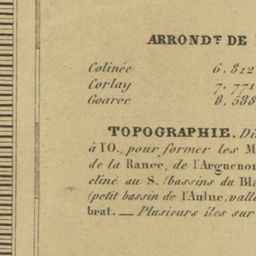 ARRONDT. DE
Colinée 6. 812
Corlay 7. 771
Goarec 8. 588
TOPOGRAPHIE. Di
à l'O., pour former les M
de la Rance, de l'Arguenon
cliné au S. (bassins du Bla
(petit bassin de l'Aulne, vall
brat. — Plusieurs îles sur